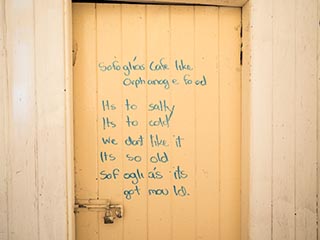 Sofoglia's Cafe like
Orphanage food
Its to salty
Its to cold
We dont like it
Its so old
Sofoglia's its
got mould.